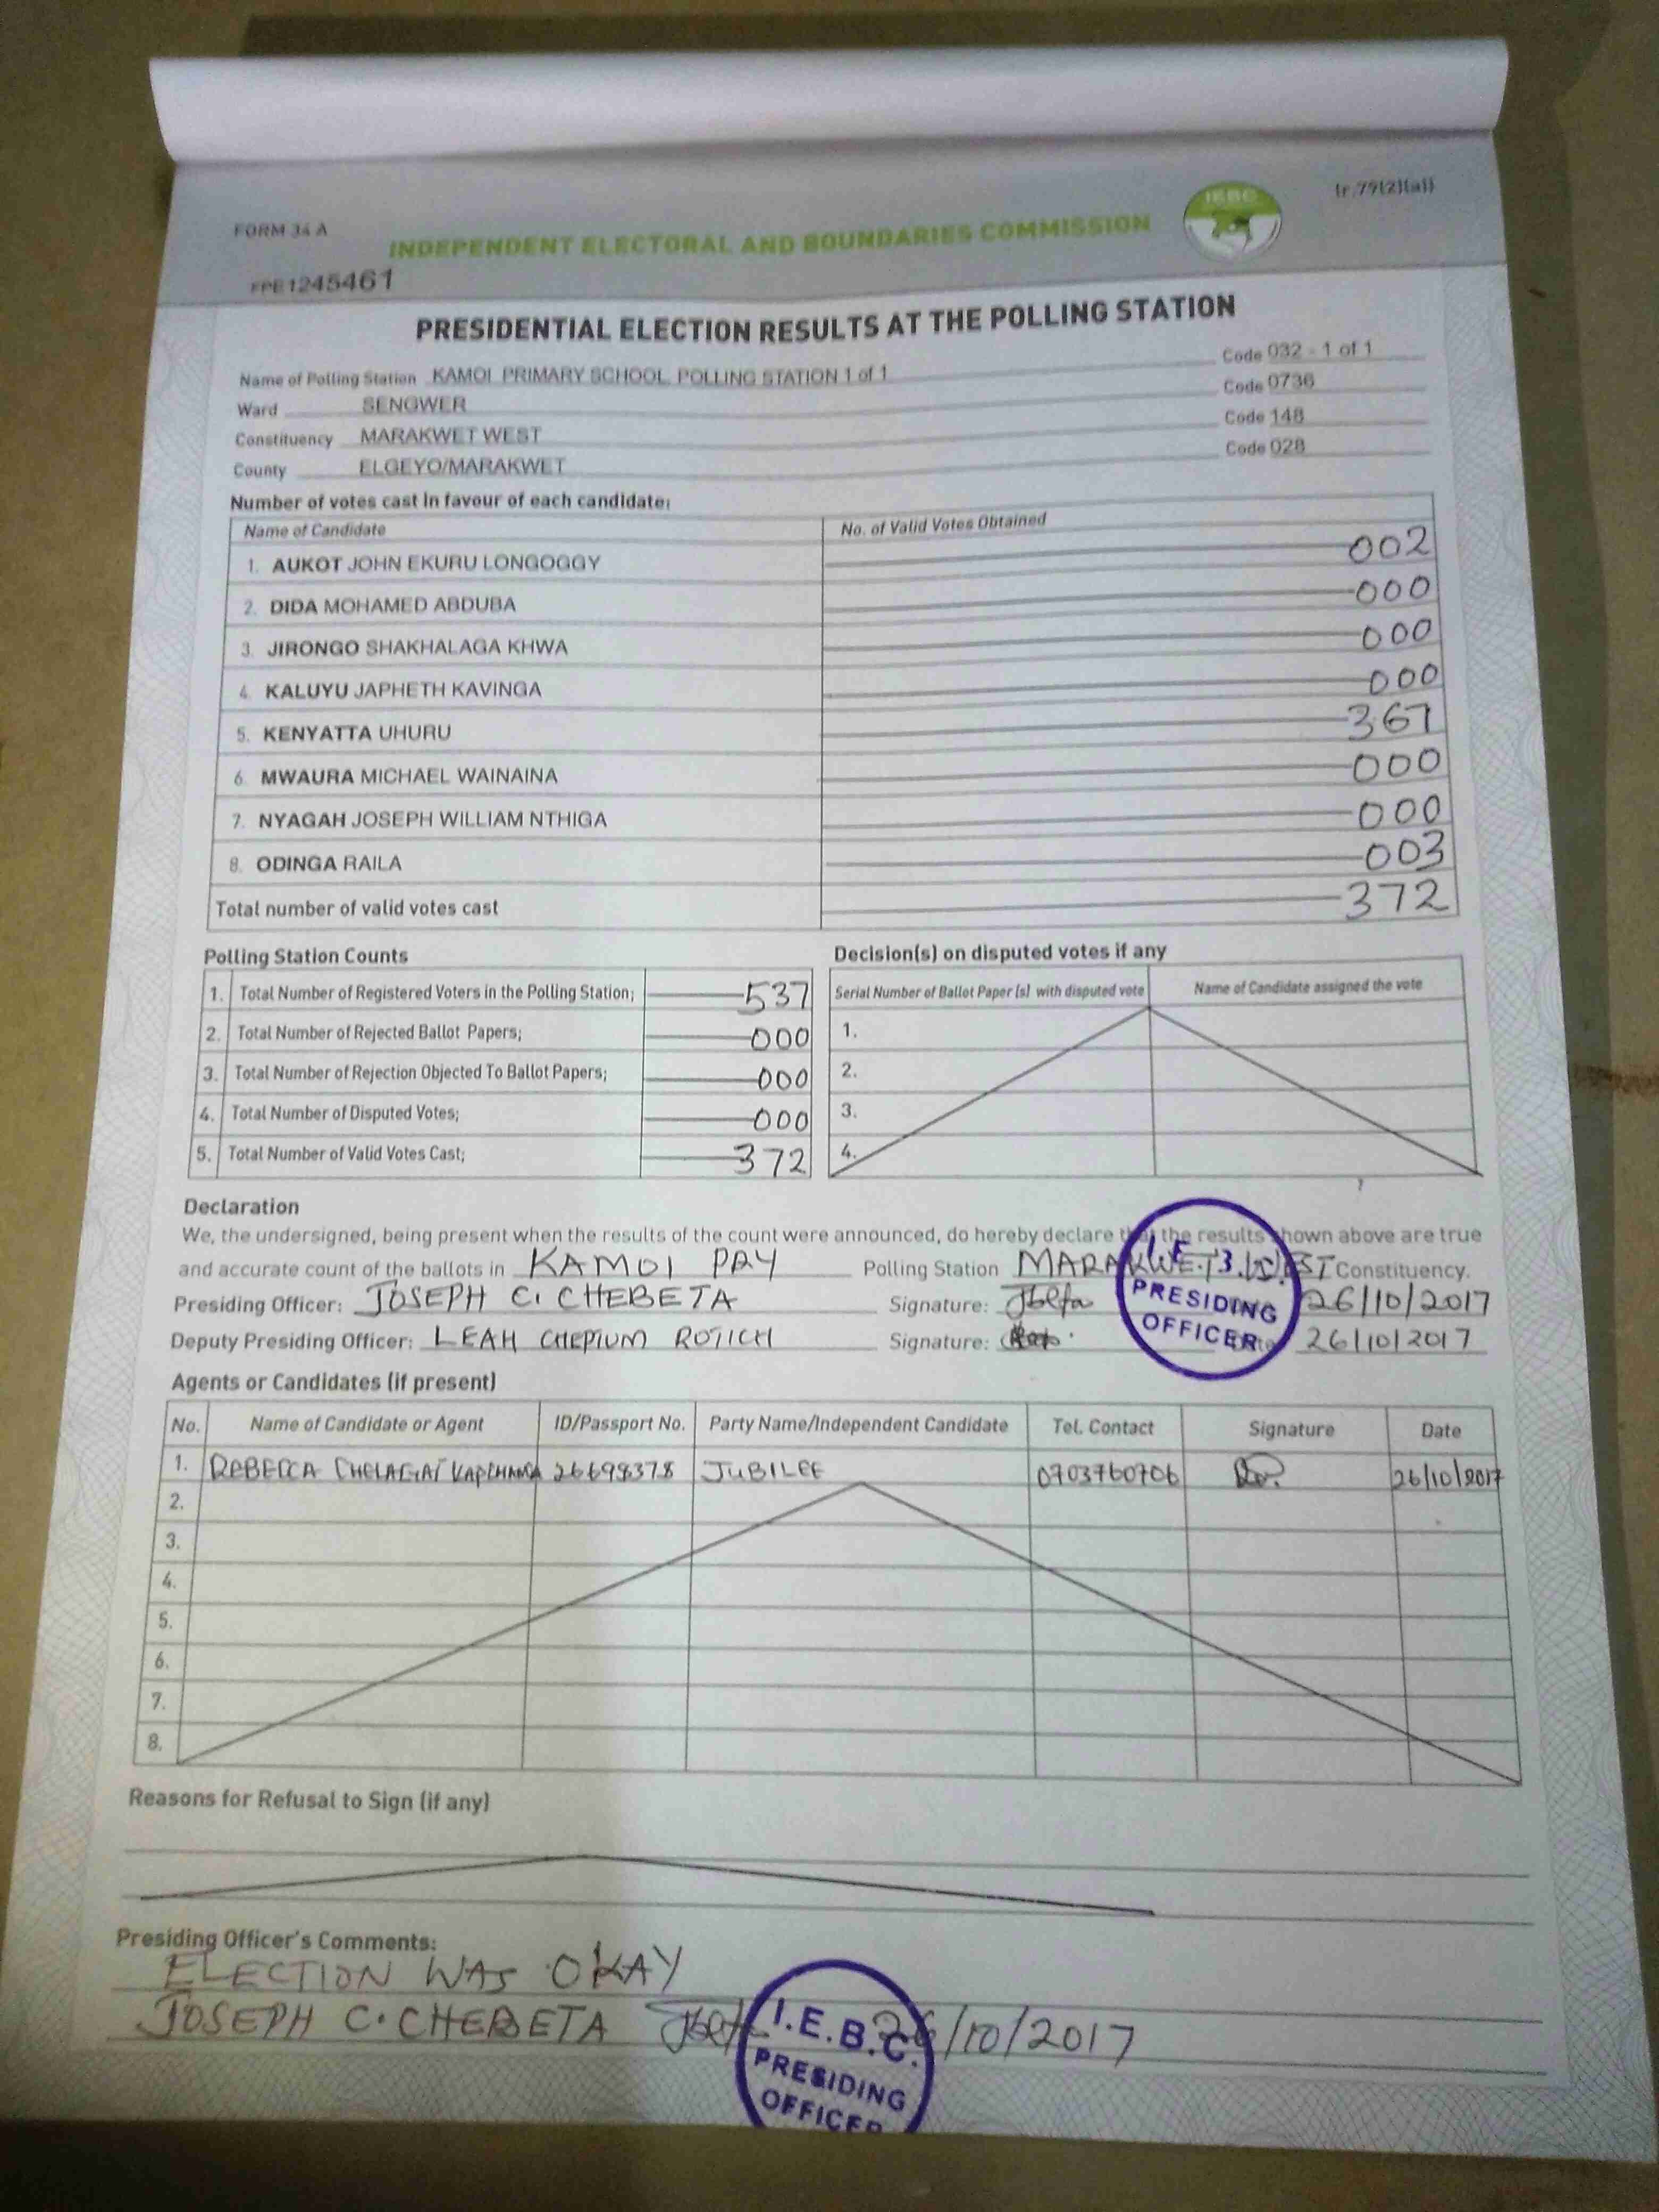 (r.79(2)(a))
FORM 34 A
INDEPENDENT ELECTORAL AND BOUNDARIES COMMISSION
IEBC
FPE1245461
PRESIDENTIAL ELECTION RESULTS AT THE POLLING STATION
Name of Polling Station KAMOI PRIMARY SCHOOL POLLING STATION 1 of 1 Code 032 - 1 of 1
Ward SENGWER Code 0736
Constituency MARAKWET WEST Code 148
County ELGEYO/MARAKWET Code 028
Number of votes cast in favour of each candidate:
Name of Candidate No. of Valid Votes Obtained
1. AUKOT JOHN EKURU LONGOGGY 002
2. DIDA MOHAMED ABDUBA 000
3. JIRONGO SHAKHALAGA KHWA 000
4. KALUYU JAPHETH KAVINGA 000
5. KENYATTA UHURU 367
6. MWAURA MICHAEL WAINAINA 000
7. NYAGAH JOSEPH WILLIAM NTHIGA 000
8. ODINGA RAILA 003
Total number of valid votes cast 372
Polling Station Counts
1. Total Number of Registered Voters in the Polling Station; 537
2. Total Number of Rejected Ballot Papers; 000
3. Total Number of Rejection Objected To Ballot Papers; 000
4. Total Number of Disputed Votes; 000
5. Total Number of Valid Votes Cast; 372
Decision(s) on disputed votes if any
Serial Number of Ballot Paper (s) with disputed vote Name of Candidate assigned the vote
1.
2.
3.
4.
Declaration
We, the undersigned, being present when the results of the count were announced, do hereby declare that the results shown above are true
and accurate count of the ballots in KAMOI PRY Polling Station MARAKWET WEST Constituency.
Presiding Officer: JOSEPH C. CHEBETA Signature: 26/10/2017
Deputy Presiding Officer: LEAH CHEPTUM ROTICH Signature: Date 26/10/2017
I.E.B.C.
PRESIDING
OFFICER
Agents or Candidates (if present)
No. Name of Candidate or Agent ID/Passport No. Party Name/Independent Candidate Tel. Contact Signature Date
1. REBECCA CHELAGAT 26698378 JUBILEE 0703760706 26/10/2017
2.
3.
4.
5.
6.
7.
8.
Reasons for Refusal to Sign (if any)
Presiding Officer's Comments:
ELECTION WAS OKAY
JOSEPH C. CHEBETA 26/10/2017
I.E.B.C.
PRESIDING
OFFICER